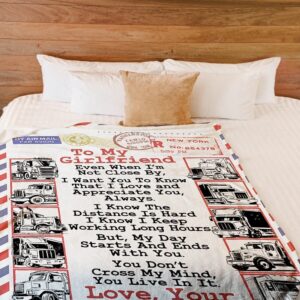 BY AIR MAIL
NEW YORK
To My
Girlfriend
Even When I'm
Not Close By,
I Want You To Know
That I Love and
Appreciate You,
Always.
I Know The
Distance Is Hard
I Know I Keep
Working Long Hours
But, My Day
Starts And Ends
With You.
You Don't
Cross My Mind,
You Live In It.
Love, Your